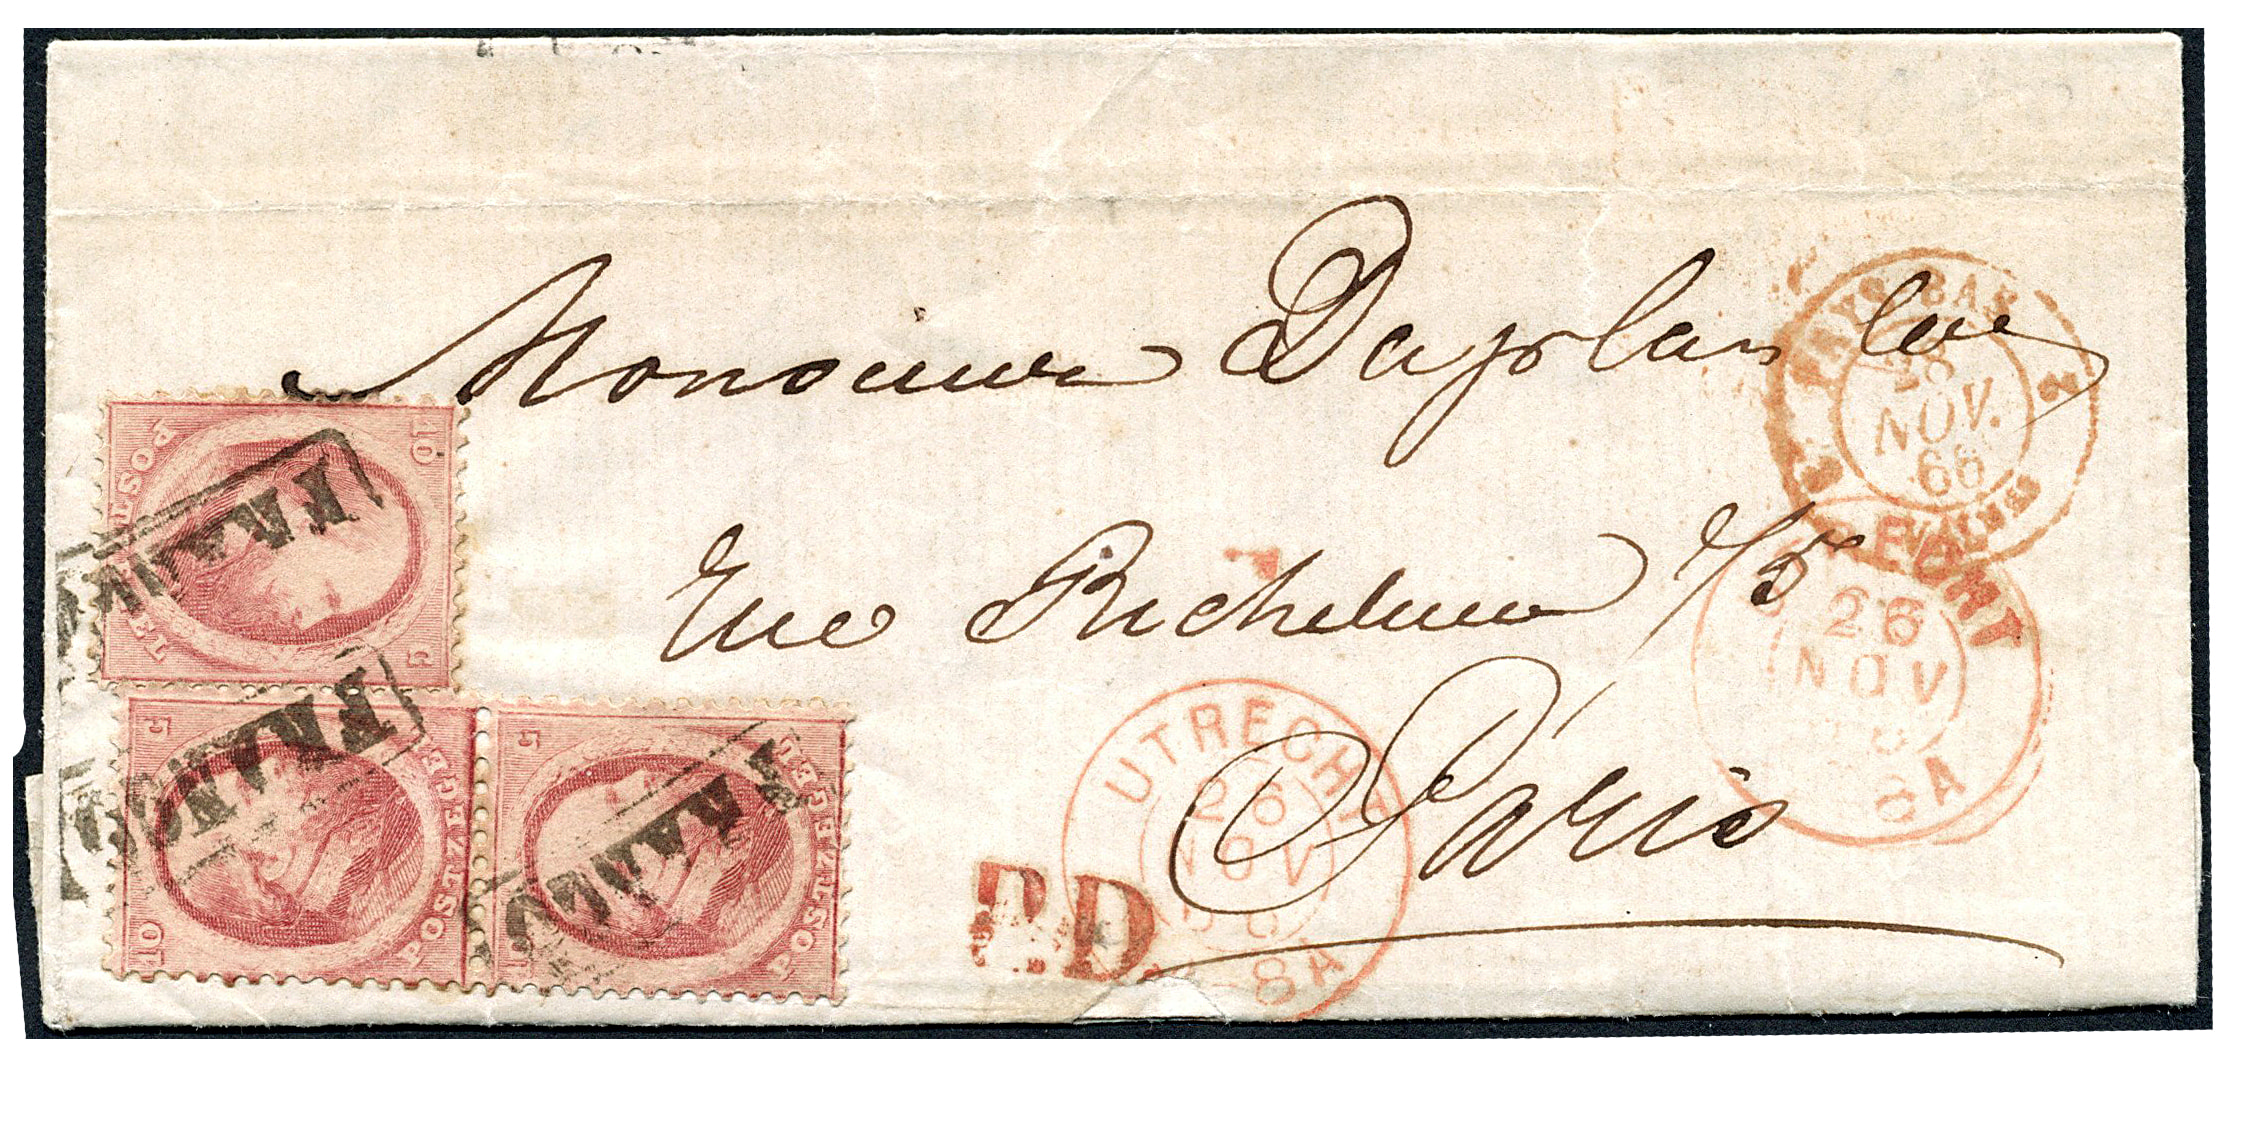 Monsieur Dayolan
Rue Richelieu
Paris
PAYS-BAS
28
NOV.
66
UTRECHT
26
NOV
8A
UTRECHT
26
NOV
8A
P.D.
10 C
POSTZEGEL
FRANCO
5 C
10
POSTZEGEL
FRANCO
5
POSTZEGEL
FRANCO